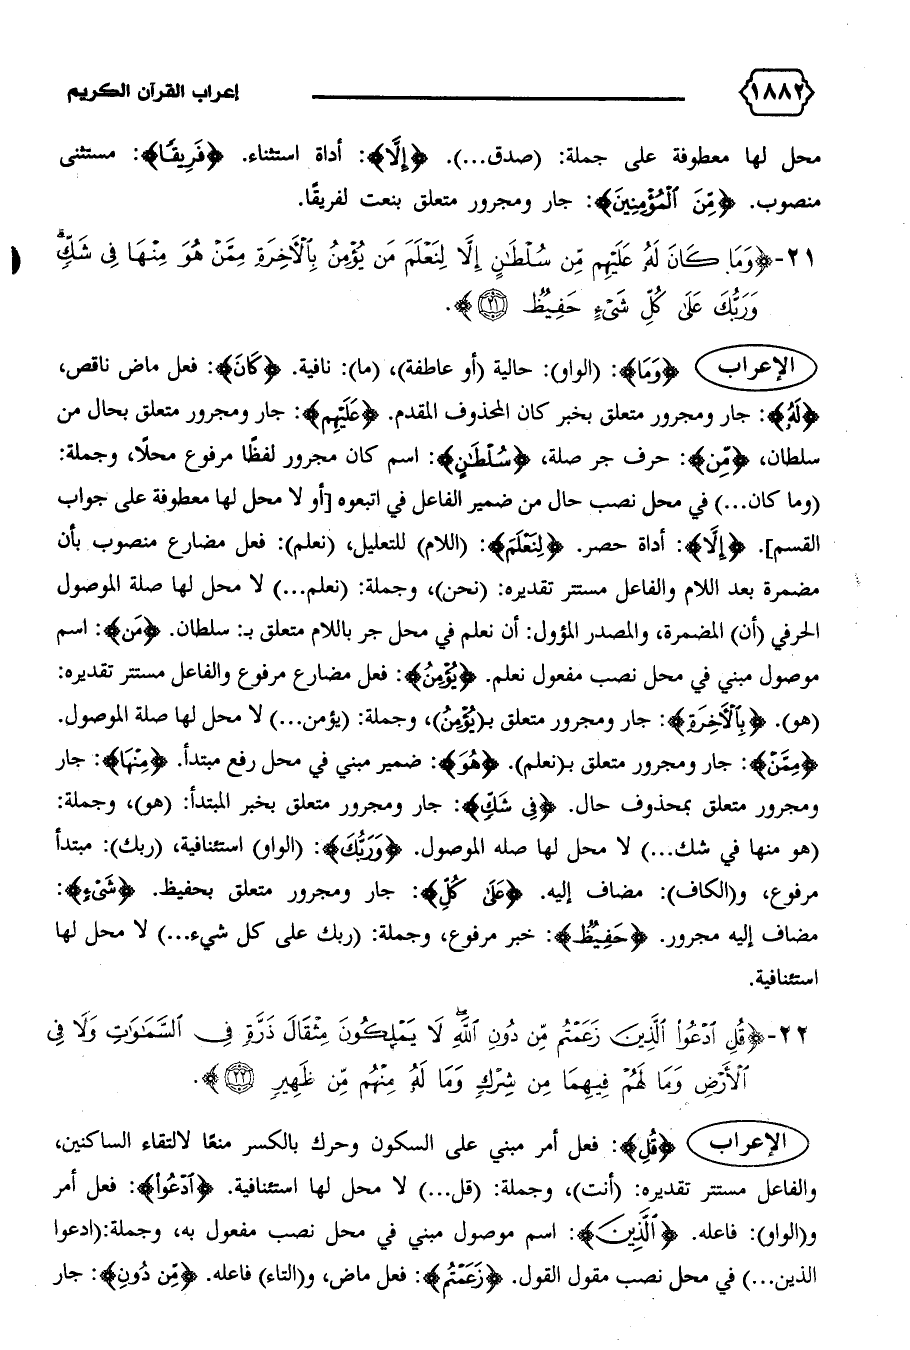 ١٨٨٢ إعراب القرآن الكريم
محل لها معطوفة على جملة: (صدق...). ﴿إِلَّا﴾: أداة استثناء. ﴿فَرِيقًا﴾: مستثنى
منصوب. ﴿مِّنَ ٱلْمُؤْمِنِينَ﴾: جار ومجرور متعلق بنعت لفريقًا.
٢١-﴿وَمَا كَانَ لَهُۥ عَلَيْهِم مِّن سُلْطَـٰنٍ إِلَّا لِنَعْلَمَ مَن يُؤْمِنُ بِٱلْأَخِرَةِ مِمَّنْ هُوَ مِنْهَا فِى شَكٍّ ۗ
وَرَبُّكَ عَلَىٰ كُلِّ شَىْءٍ حَفِيظٌ ﴿٢١﴾﴾.
الإعراب ﴿وَمَا﴾: (الواو): حالية (أو عاطفة)، (ما): نافية. ﴿كَانَ﴾: فعل ماض ناقص،
﴿لَهُۥ﴾: جار ومجرور متعلق بخبر كان المحذوف المقدم. ﴿عَلَيْهِم﴾: جار ومجرور متعلق بحال من
سلطان، ﴿مِّن﴾: حرف جر صلة، ﴿سُلْطَـٰنٍ﴾: اسم كان مجرور لفظًا مرفوع محلًا، وجملة:
(وما كان...) في محل نصب حال من ضمير الفاعل في اتبعوه [أو لا محل لها معطوفة على جواب
القسم]. ﴿إِلَّا﴾: أداة حصر. ﴿لِنَعْلَمَ﴾: (اللام) للتعليل، (نعلم): فعل مضارع منصوب بأن
مضمرة بعد اللام والفاعل مستتر تقديره: (نحن)، وجملة: (نعلم...) لا محل لها صلة الموصول
الحرفي (أن) المضمرة، والمصدر المؤول: أن نعلم في محل جر باللام متعلق بـ: سلطان. ﴿مَن﴾: اسم
موصول مبني في محل نصب مفعول نعلم. ﴿يُؤْمِنُ﴾: فعل مضارع مرفوع والفاعل مستتر تقديره:
(هو). ﴿بِٱلْأَخِرَةِ﴾: جار ومجرور متعلق بـ(يُؤْمِنُ)، وجملة: (يؤمن...) لا محل لها صلة الموصول.
﴿مِمَّنْ﴾: جار ومجرور متعلق بـ(نعلم). ﴿هُوَ﴾: ضمير مبني في محل رفع مبتدأ. ﴿مِنْهَا﴾: جار
ومجرور متعلق بمحذوف حال. ﴿فِى شَكٍّ﴾: جار ومجرور متعلق بخبر المبتدأ: (هو)، وجملة:
(هو منها في شك...) لا محل لها صله الموصول. ﴿وَرَبُّكَ﴾: (الواو) استئنافية، (ربك): مبتدأ
مرفوع، و(الكاف): مضاف إليه. ﴿عَلَىٰ كُلِّ﴾: جار ومجرور متعلق بحفيظ. ﴿شَىْءٍ﴾:
مضاف إليه مجرور. ﴿حَفِيظٌ﴾: خبر مرفوع، وجملة: (ربك على كل شيء...) لا محل لها
استئنافية.
٢٢-﴿قُلِ ٱدْعُوا۟ ٱلَّذِينَ زَعَمْتُم مِّن دُونِ ٱللَّهِ ۖ لَا يَمْلِكُونَ مِثْقَالَ ذَرَّةٍ فِى ٱلسَّمَـٰوَٰتِ وَلَا فِى
ٱلْأَرْضِ وَمَا لَهُمْ فِيهِمَا مِن شِرْكٍ وَمَا لَهُۥ مِنْهُم مِّن ظَهِيرٍ ﴿٢٢﴾﴾.
الإعراب ﴿قُلِ﴾: فعل أمر مبني على السكون وحرك بالكسر منعًا لالتقاء الساكنين،
والفاعل مستتر تقديره: (أنت)، وجملة: (قل...) لا محل لها استئنافية. ﴿ٱدْعُوا۟﴾: فعل أمر
و(الواو): فاعله. ﴿ٱلَّذِينَ﴾: اسم موصول مبني في محل نصب مفعول به، وجملة:(ادعوا
الذين...) في محل نصب مقول القول. ﴿زَعَمْتُم﴾: فعل ماض، و(التاء) فاعله. ﴿مِّن دُونِ﴾: جار